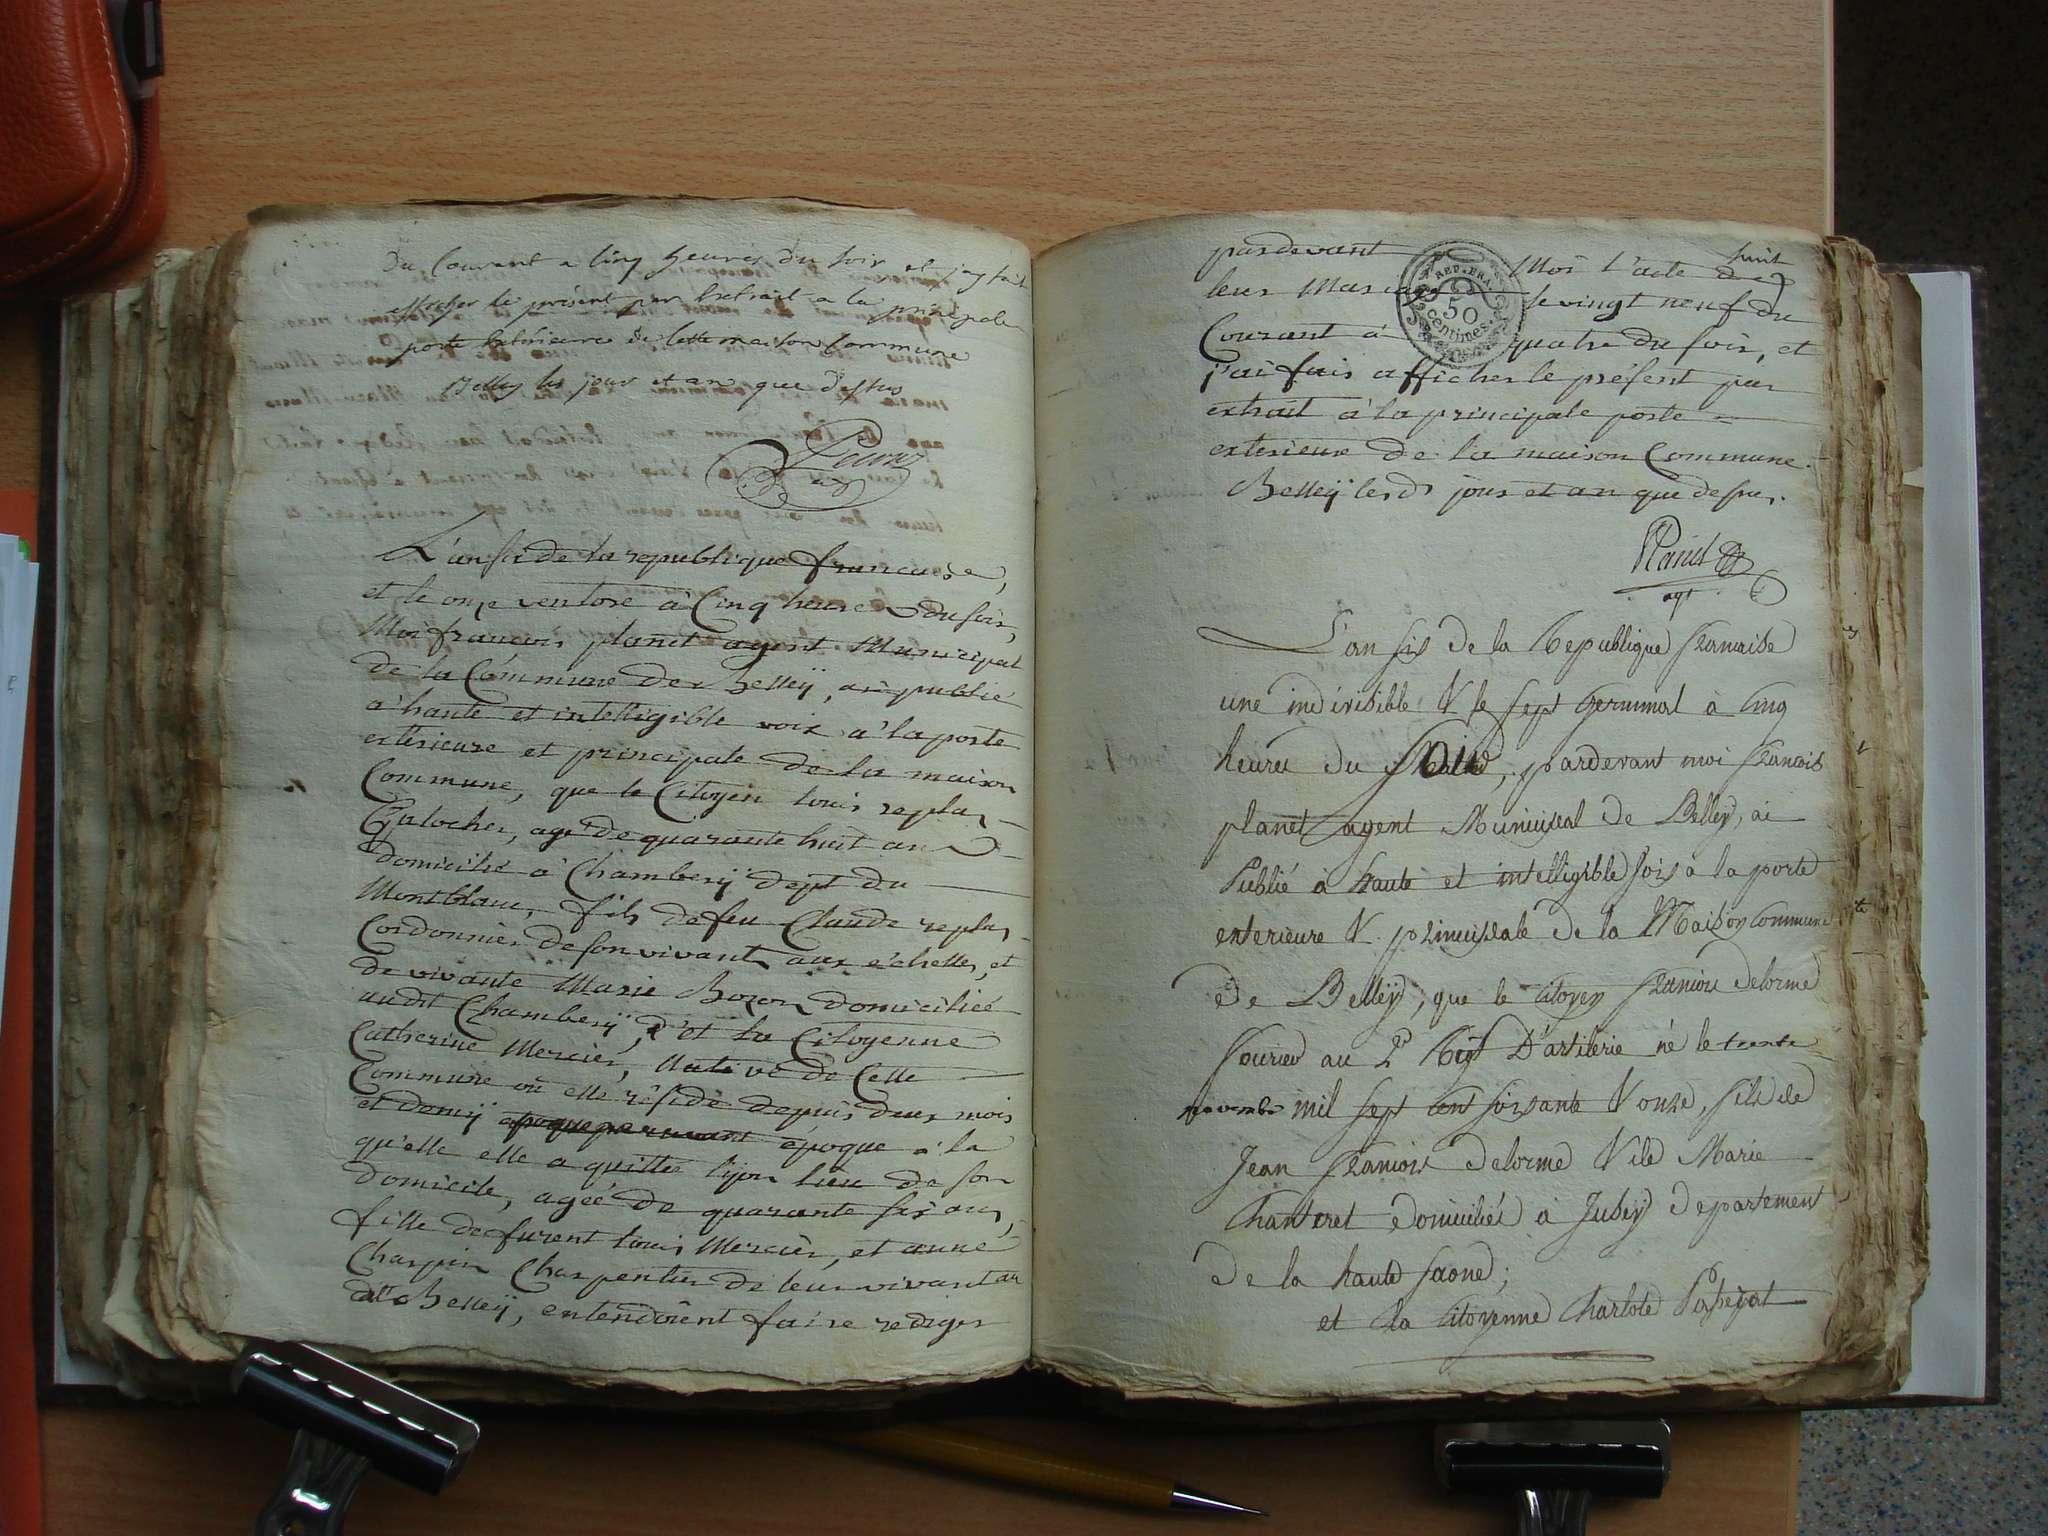 Du Courant a Cinq heures du soir et j'ay fait
afficher le présent par Extrait a la principale
porte Extérieure de Cette maison Commune
Belley les jour et an que dessus
L'an six de la republique francaise,
et le onze ventose à Cinq heures du soir,
Moi francois planet agent Municipal
de la Commune de Belleÿ, ai publié
a haute et intelligible voix a la porte
exterieure et principale de la maison
Commune, que le Citoyen Louis replat
Galocher, agé de quarante huit ans
domicilié à Chamberÿ dept du
Montblanc, fils de feu Claude replat
Cordonnier de son vivant aux échelles, et
de vivante Marie Bozon domiciliée
audit Chamberÿ, et la Citoyenne
Catherine Mercier, Native de Cette
Commune où elle réside depuis deux mois
et demÿ époque à la
qu'elle elle a quitté lyon lieu de son
domicile, agéé de quarante six ans,
fille de furent Louis Mercier, et anne
Charpin Charpentier de leur vivant au
dit Belleÿ, entendoient faire rediger
pardevant Moi l'acte de
huit
leur Mariage le vingt neuf du
Courant à quatre du soir, et
j'ai fais afficher le présent par
extrait à la principale porte =
exterieure de la maison Commune.
Belleÿ lesd jour et an que dessus.
REP. FRA.
50
centimes.
Planet
agt
L'an six de la Republique francaise
une indivisible & le sept Germinal à cinq
heures du soir, pardevant moi francois
planet agent Municipal de Belleÿ, ai
Publié à haute et intelligible fois à la porte
exterieure & principale de la Maison Commune
de Belleÿ, que le citoyen francois Delorme
fourier au 2e Regt D'artilerie né le trente
novembre mil sept cent soixante & onze, fils de
Jean francois Delorme & de Marie
Chanteret domiciliés à Jusey Departement
de la haute saone;
et la citoyenne Charlote